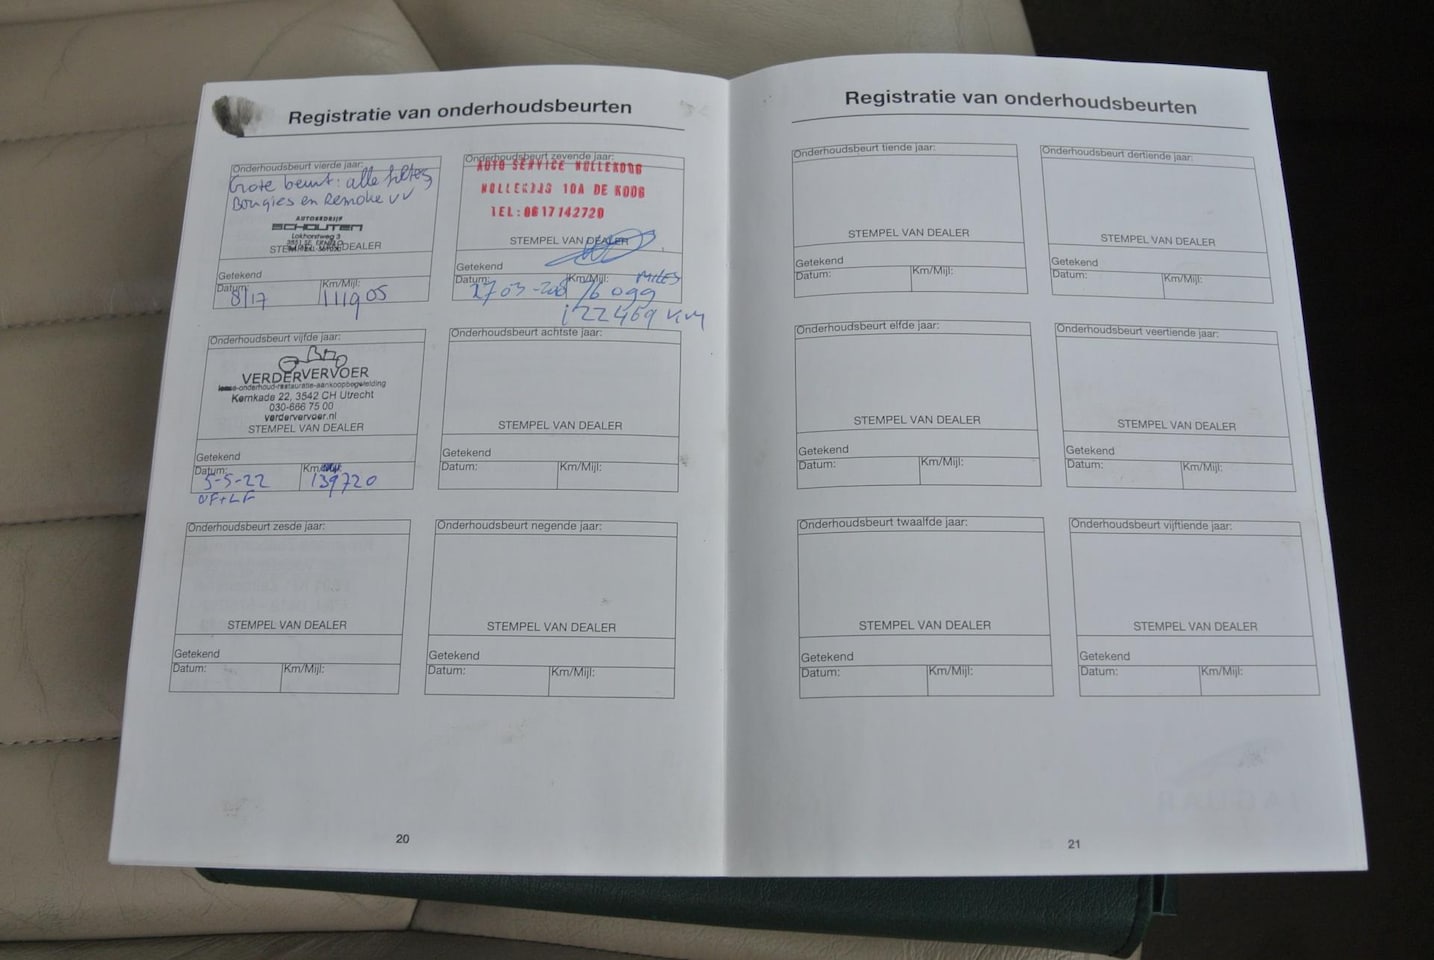 Registratie van onderhoudsbeurten
Onderhoudsbeurt vierde jaar:
Grote beurt: alle filters
Bougies en Remolie VV
AUTOBEDRIJF
SCHOUTEN
Lokhorstweg 3
3851 SE ERMELO
STEMPEL VAN DEALER
Getekend
Datum: Km/Mijl:
8/17 111905
Onderhoudsbeurt vijfde jaar:
VERDERVERVOER
lease-onderhoud-restauratie-aankoopbegeleiding
Kernkade 22, 3542 CH Utrecht
030-666 75 00
verdervervoer.nl
STEMPEL VAN DEALER
Getekend
Datum: Km/Mijl:
5-5-22 139720
OF+LF
Onderhoudsbeurt zesde jaar:
STEMPEL VAN DEALER
Getekend
Datum: Km/Mijl:
Onderhoudsbeurt zevende jaar:
AUTO SERVICE NOLLEKOOG
10A DE KOOG
TEL:0617142720
STEMPEL VAN DEALER
Getekend
Datum: Km/Mijl: MILES
27 03 76 099
122469 KM
Onderhoudsbeurt achtste jaar:
STEMPEL VAN DEALER
Getekend
Datum: Km/Mijl:
Onderhoudsbeurt negende jaar:
STEMPEL VAN DEALER
Getekend
Datum: Km/Mijl:
20
Registratie van onderhoudsbeurten
Onderhoudsbeurt tiende jaar:
STEMPEL VAN DEALER
Getekend
Datum: Km/Mijl:
Onderhoudsbeurt elfde jaar:
STEMPEL VAN DEALER
Getekend
Datum: Km/Mijl:
Onderhoudsbeurt twaalfde jaar:
STEMPEL VAN DEALER
Getekend
Datum: Km/Mijl:
Onderhoudsbeurt dertiende jaar:
STEMPEL VAN DEALER
Getekend
Datum: Km/Mijl:
Onderhoudsbeurt veertiende jaar:
STEMPEL VAN DEALER
Getekend
Datum: Km/Mijl:
Onderhoudsbeurt vijftiende jaar:
STEMPEL VAN DEALER
Getekend
Datum: Km/Mijl:
21